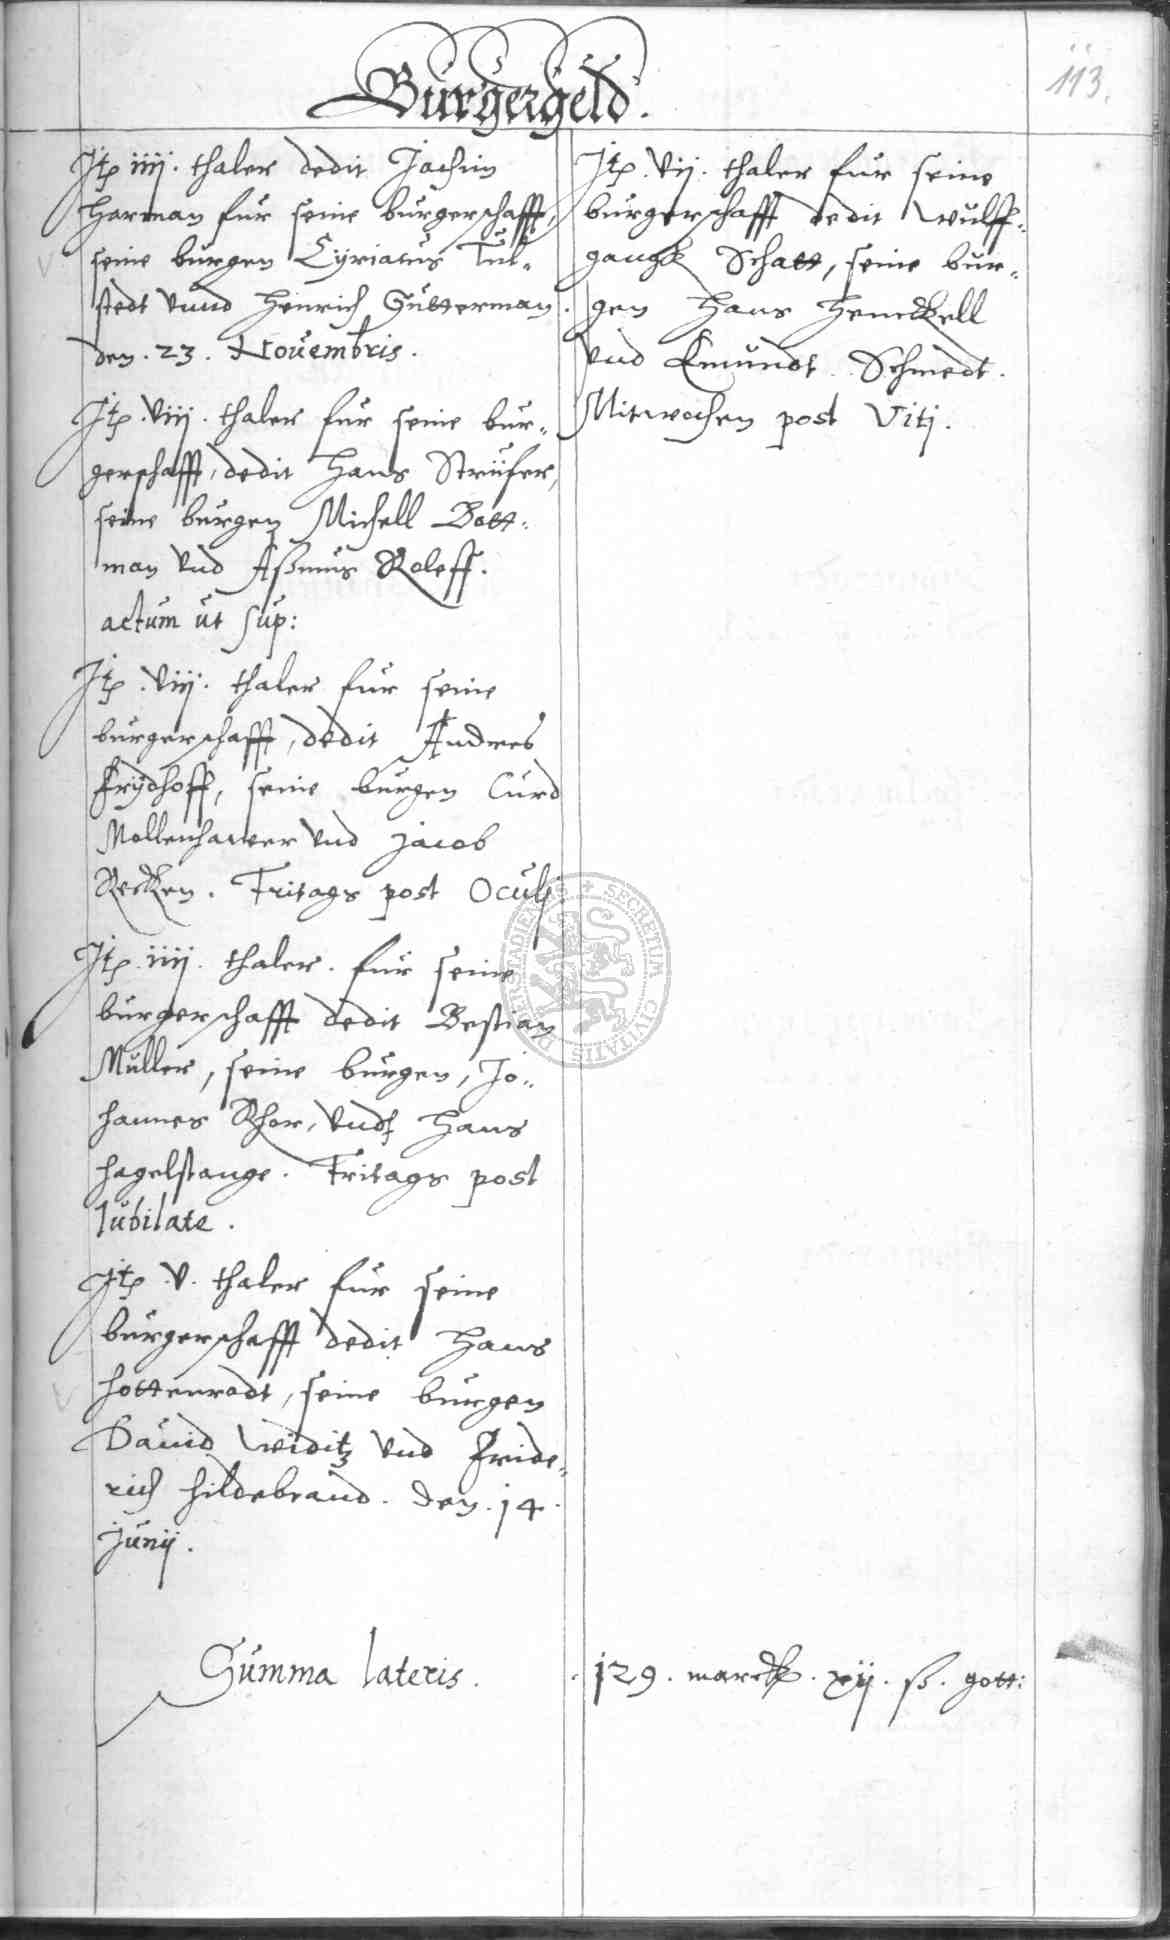 113.
Burgergeld.
Itp iiij. thaler dedit Jachim
Harman fur seine burgerschafft,
seine burgen Cyriacus Tut„
stedt vnnd Heinrich Gutterman.
den. 23. Nouembris.
Itp. viij. thaler fur seine bur„
gerschafft, dedit Hans Strüfer,
seine burgen Michell Bott„
man vnd Aßmus Roleff.
actum ut sup:
Itp. viij. thaler fur seine
burgerschafft, dedit Andres
Frijdhoff, seine burgen Curd
Mollenhawer vnd Jacob
Recken. Fritags post Oculj
Itp. iiij. thaler. fur seine
burgerschafft dedit Bestian
Muller, seine burgen, Jo„
hannes Rhor, vnd Hans
Hagelstange. Fritags post
Iubilate.
Itp. v. thaler fur seine
burgerschafft dedit Hans
Hottenrodt, seine burgen
Dauid Widitz vnd Fride„
rich Hildebrand. den. 14.
Junij.
Itp. vij. thaler fur seine
burgerschafft dedit Wulff„
gangk Schatt, seine bur„
gen Hans Henckell
vnd Emundt Schmedt.
Mitwochen post Vitj.
SECRETUM CIVITATIS DUDERSTADIENSIS
Summa lateris. 129. marck. xij. ß. gott: